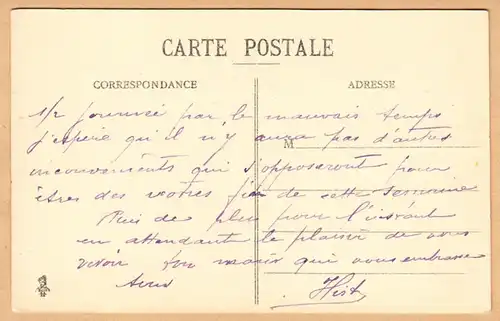 CARTE POSTALE
CORRESPONDANCE
ADRESSE
1/2 journée par le mauvais temps
j'espère qu'il n'y aura pas d'autres
M
inconvenients qui s'opposeront pour
êtres des votres fin de cette semaine
Puis de plus pour l'instant
en attendant le plaisir de vous
revoir ton mari qui vous embrasse
tous